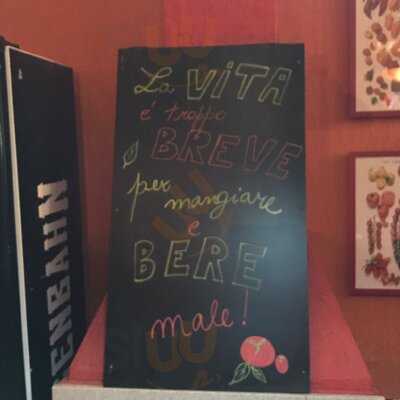 La VITA
é troppo
BREVE
per mangiare
e
BERE
male!
ENBAHN